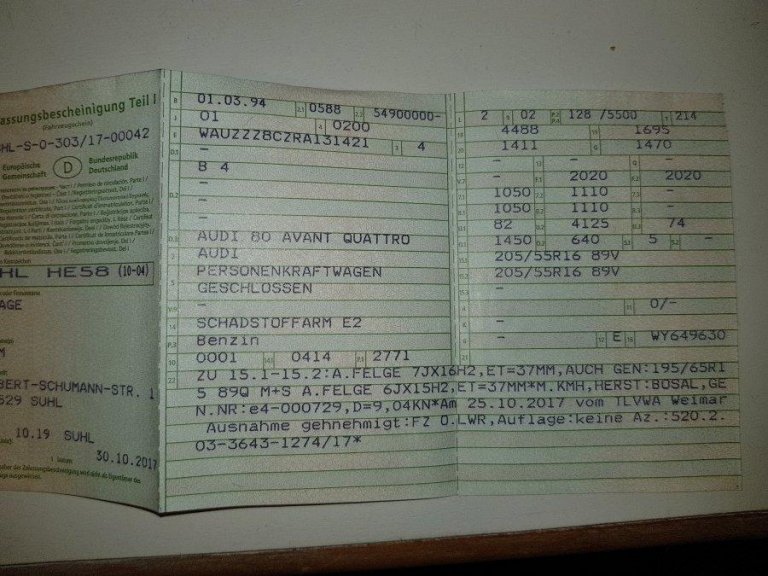 assungsbescheinigung Teil I
(Fahrzeugschein)
HL-S-O-303/17-00042
Europäische Gemeinschaft D Bundesrepublik Deutschland
HL HE58 (10-04)
AGE
M
BERT-SCHUMANN-STR. 1
529 SUHL
10.19 SUHL
30.10.2017
B 01.03.94 2.1 0588 2.2 54900000-
J 01 4 0200
E WAUZZZ8CZRA131421 3 4
D.1 -
B 4
D.2 -
-
-
D.3 AUDI 80 AVANT QUATTRO
AUDI
5 PERSONENKRAFTWAGEN
GESCHLOSSEN
V.9 -
14 SCHADSTOFFARM E2
P.3 Benzin
10 0001 14.1 0414 P.1 2771
L 2 9 02 P.2 P.4 128 /5500 T 214
18 4488 19 1695
20 1411 G 1470
12 - 13 - Q -
V.7 - F.1 2020 F.2 2020
1050 1110 -
1050 1110 -
82 4125 74
1450 640 S.1 5 S.2 -
205/55R16 89V
205/55R16 89V
-
- 11 0/-
K -
6 - 17 E 16 WY649630
21
22 ZU 15.1-15.2:A.FELGE 7JX16H2,ET=37MM,AUCH GEN:195/65R1
5 89Q M+S A.FELGE 6JX15H2,ET=37MM*M.KMH,HERST:BOSAL,GE
N.NR:e4-000729,D=9,04KN*Am 25.10.2017 vom TLVWA Weimar
Ausnahme gehnehmigt:FZ O.LWR,Auflage:keine Az.:520.2.
03-3643-1274/17*